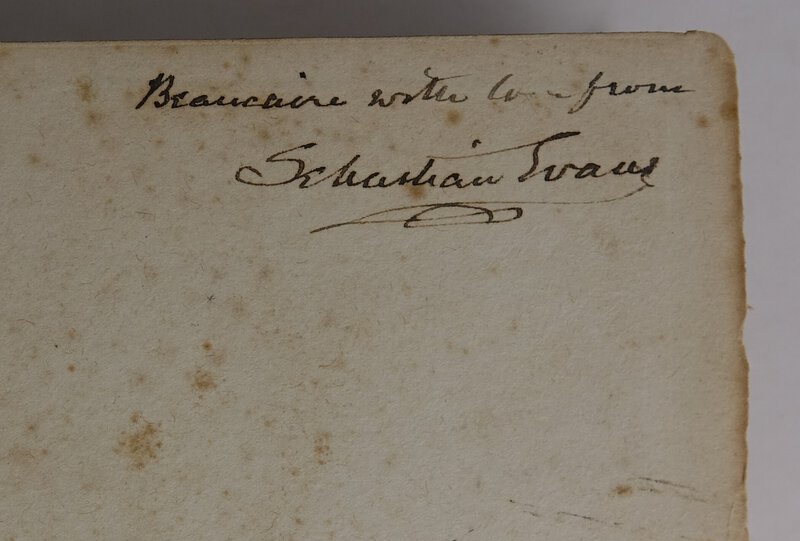 Beaucaire with love from
Sebastian Evans